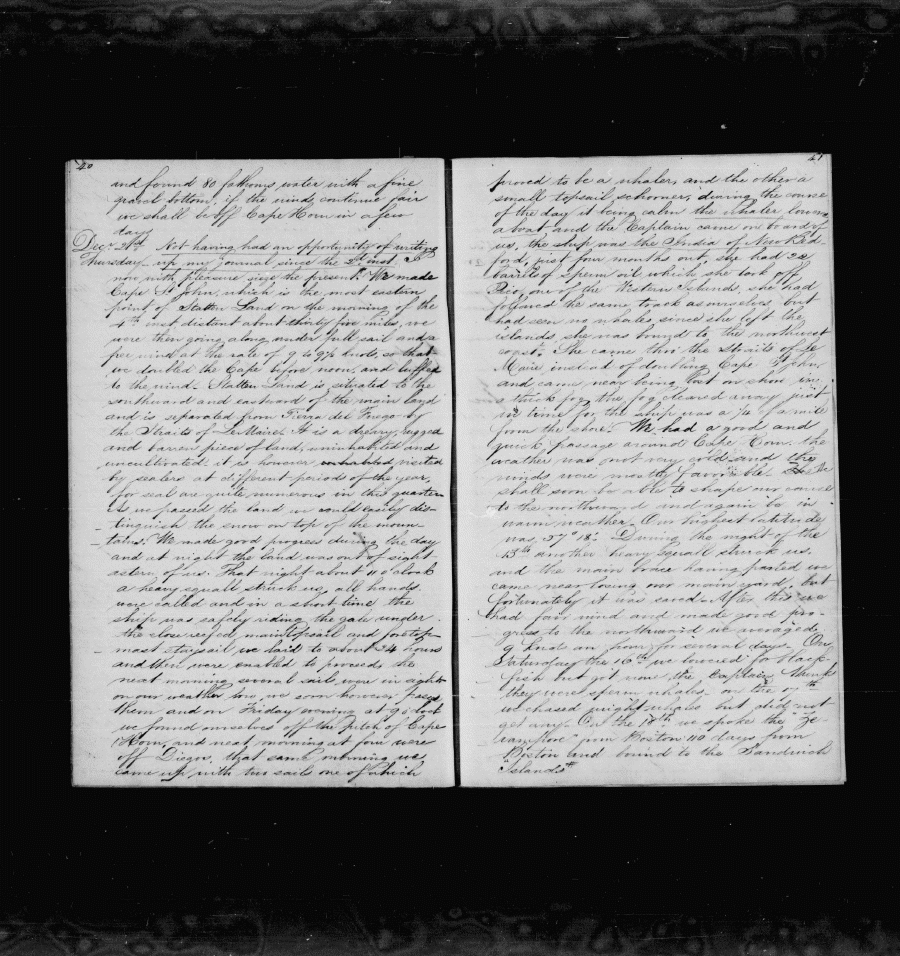 40
and found 80 fathoms water with a fine
gravel bottom, if the winds continue fair
we shall be off Cape Horn in a few
days
Decr 21st Not having had an opportunity of writing
Thursday up my Journal since the 2d inst. I
now with pleasure the present. We made
Cape St John, which is the most eastern
point of Staten Land on the morning of the
4th inst distant about thirty five miles, we
were then going along under full sail and a
free wind at the rate of 9 to 9½ knots, so that
we doubled the Cape before noon, and luffed
to the wind. Statten Land is situated to the
southward and eastward of the main land
and is separated from Tierra del Fuego by
the Straits of Le Maire. It is a dreary, rugged
and barren piece of land, uninhabited and
uncultivated. it is however visited
by sealers at different periods of the year,
for seal are quite numerous in this quarter.
As we passed the land we could easily dis-
tinguish the snow on top of the moun-
tains. We made good progress during the day
and at night the land was out of sight
astern of us. That night about 11 o'clock
a heavy squall struck us, all hands
were called and in a short time the
ship was safely riding the gale under
the close reefed maintopsail and foretop-
mast staysail we laid to about 24 hours
and then were enabled to proceed, the
next morning several sails were in sight
on our weather bow, we soon however passed
them and on Friday evening at 9 o'clock
we found ourselves off the pitch of Cape
Horn, and next morning at four were
off Diegos, that same morning we
came up with two sails one of which
41
proved to be a whaler, and the other a
small topsail schooner, during the course
of the day it being calm the whaler lowered
a boat, and the Captain came on board of
us, the ship was the India of New Bed-
ford, just four months out, she had 20
barrels of sperm oil which she took off
Pico, one of the Western Islands, she had
followed the same track as ourselves but
had seen no whales since she left the
islands she was bound to the northwest
coast. She came thro' the Straits of Le
Maire instead of doubling Cape St John,
and came near being lost on shore in
a thick fog, the fog cleared away just
in time for the ship was a ¼ of a mile
from the shore. We had a good and
quick passage around Cape Horn. the
weather was not very cold and the
winds were mostly favorable. We
shall soon be able to shape our course
to the northward and again be in
warm weather. Our highest latitude
was 57° 18'. During the night of the
13th another heavy squall struck us.
and the main brace having parted we
came near losing our main yard, but
fortunately it was saved. After this we
had fair wind and made good pro-
gress to the northward we averaged
9 knot an hour for several days. On
Saturday the 16th we lowered for black-
fish but got none, the Captain thinks
they were sperm whales. on the 17th
we chased right whales but did not
get any. On the 18th we spoke the
from Boston 110 days from
Boston and bound to the Sandwich
Islands